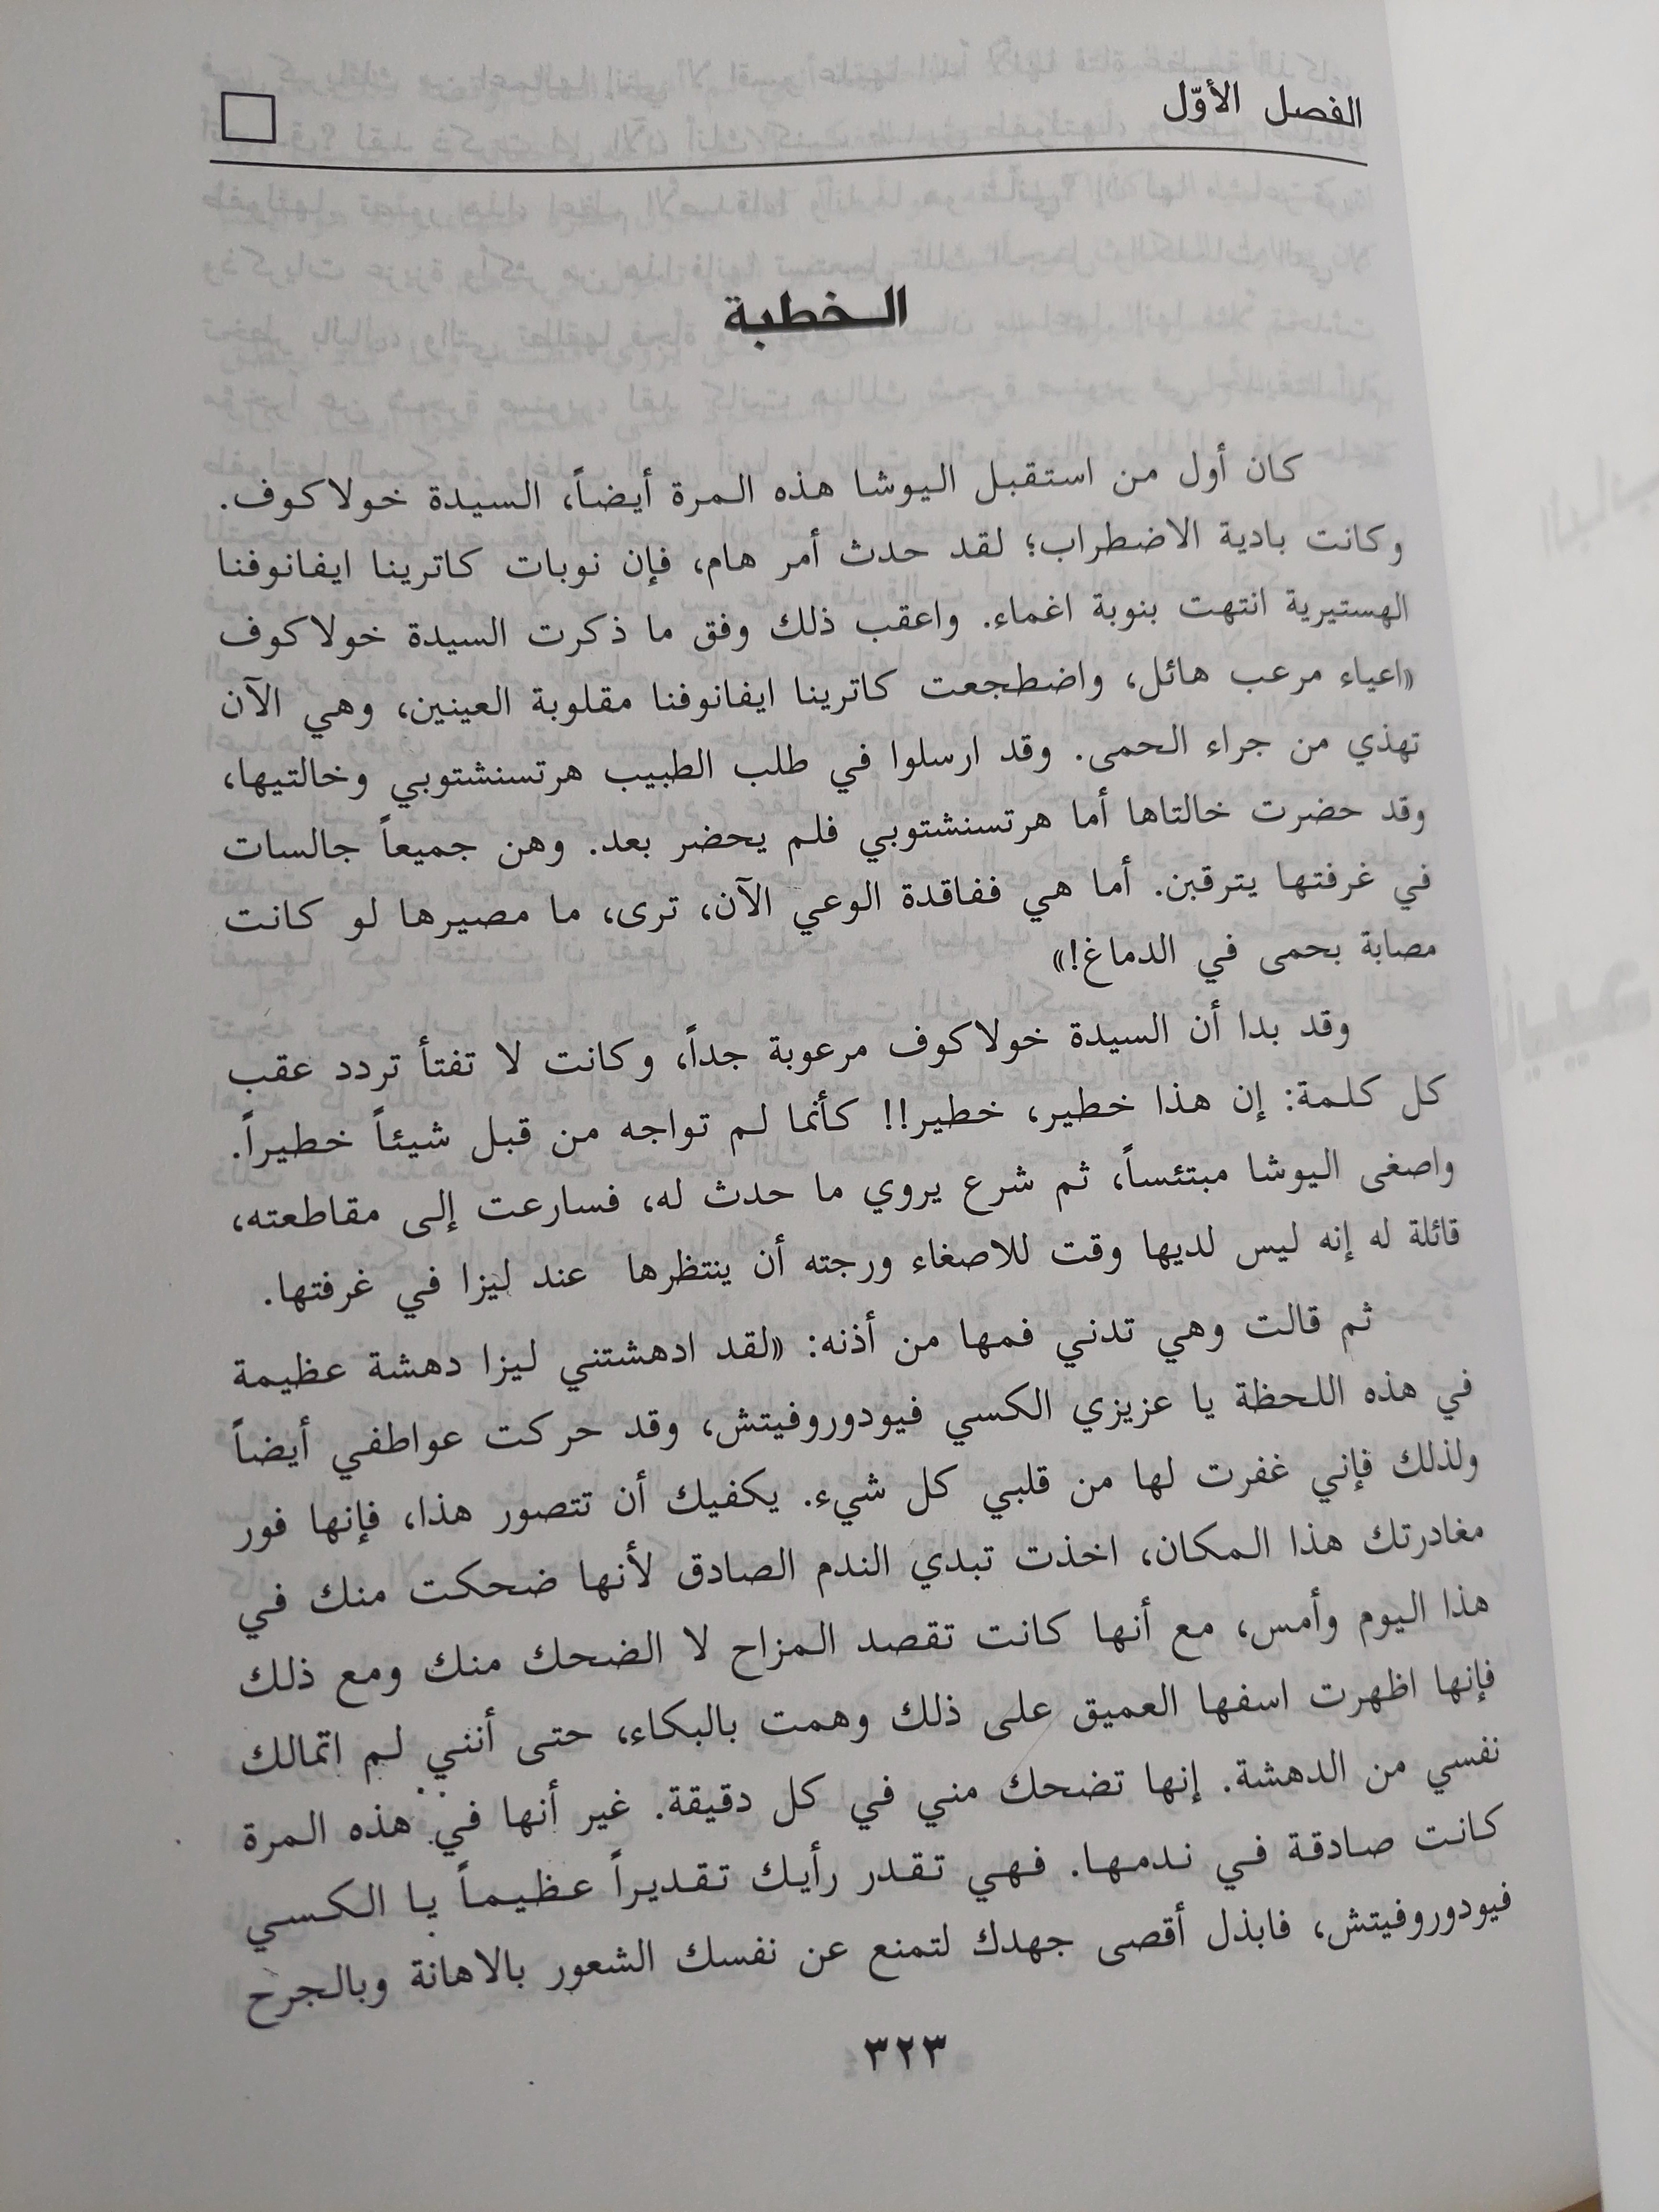 الفصل الأوّل
الخطبة
كان أول من استقبل اليوشا هذه المرة أيضاً، السيدة خولاكوف.
وكانت بادية الاضطراب؛ لقد حدث أمر هام، فإن نوبات كاترينا ايفانوفنا
الهستيرية انتهت بنوبة اغماء. واعقب ذلك وفق ما ذكرت السيدة خولاكوف
«اعياء مرعب هائل، واضطجعت كاترينا ايفانوفنا مقلوبة العينين، وهي الآن
تهذي من جراء الحمى. وقد ارسلوا في طلب الطبيب هرتسنشتوبي وخالتيها،
وقد حضرت خالتاها أما هرتسنشتوبي فلم يحضر بعد. وهن جميعاً جالسات
في غرفتها يترقبن. أما هي ففاقدة الوعي الآن، ترى، ما مصيرها لو كانت
مصابة بحمى في الدماغ!»
وقد بدا أن السيدة خولاكوف مرعوبة جداً، وكانت لا تفتأ تردد عقب
كل كلمة: إن هذا خطير، خطير!! كأنما لم تواجه من قبل شيئاً خطيراً.
واصغى اليوشا مبتئساً، ثم شرع يروي ما حدث له، فسارعت إلى مقاطعته،
قائلة له إنه ليس لديها وقت للاصغاء ورجته أن ينتظرها عند ليزا في غرفتها.
ثم قالت وهي تدني فمها من أذنه: «لقد ادهشتني ليزا دهشة عظيمة
في هذه اللحظة يا عزيزي الكسي فيودوروفيتش، وقد حركت عواطفي أيضاً
ولذلك فإني غفرت لها من قلبي كل شيء. يكفيك أن تتصور هذا، فإنها فور
مغادرتك هذا المكان، اخذت تبدي الندم الصادق لأنها ضحكت منك في
هذا اليوم وأمس، مع أنها كانت تقصد المزاح لا الضحك منك ومع ذلك
فإنها اظهرت اسفها العميق على ذلك وهمت بالبكاء، حتى أنني لم اتمالك
نفسي من الدهشة. إنها تضحك مني في كل دقيقة. غير أنها في هذه المرة
كانت صادقة في ندمها. فهي تقدر رأيك تقديراً عظيماً يا الكسي
فيودوروفيتش، فابذل أقصى جهدك لتمنع عن نفسك الشعور بالاهانة وبالجرح
٣٢٣